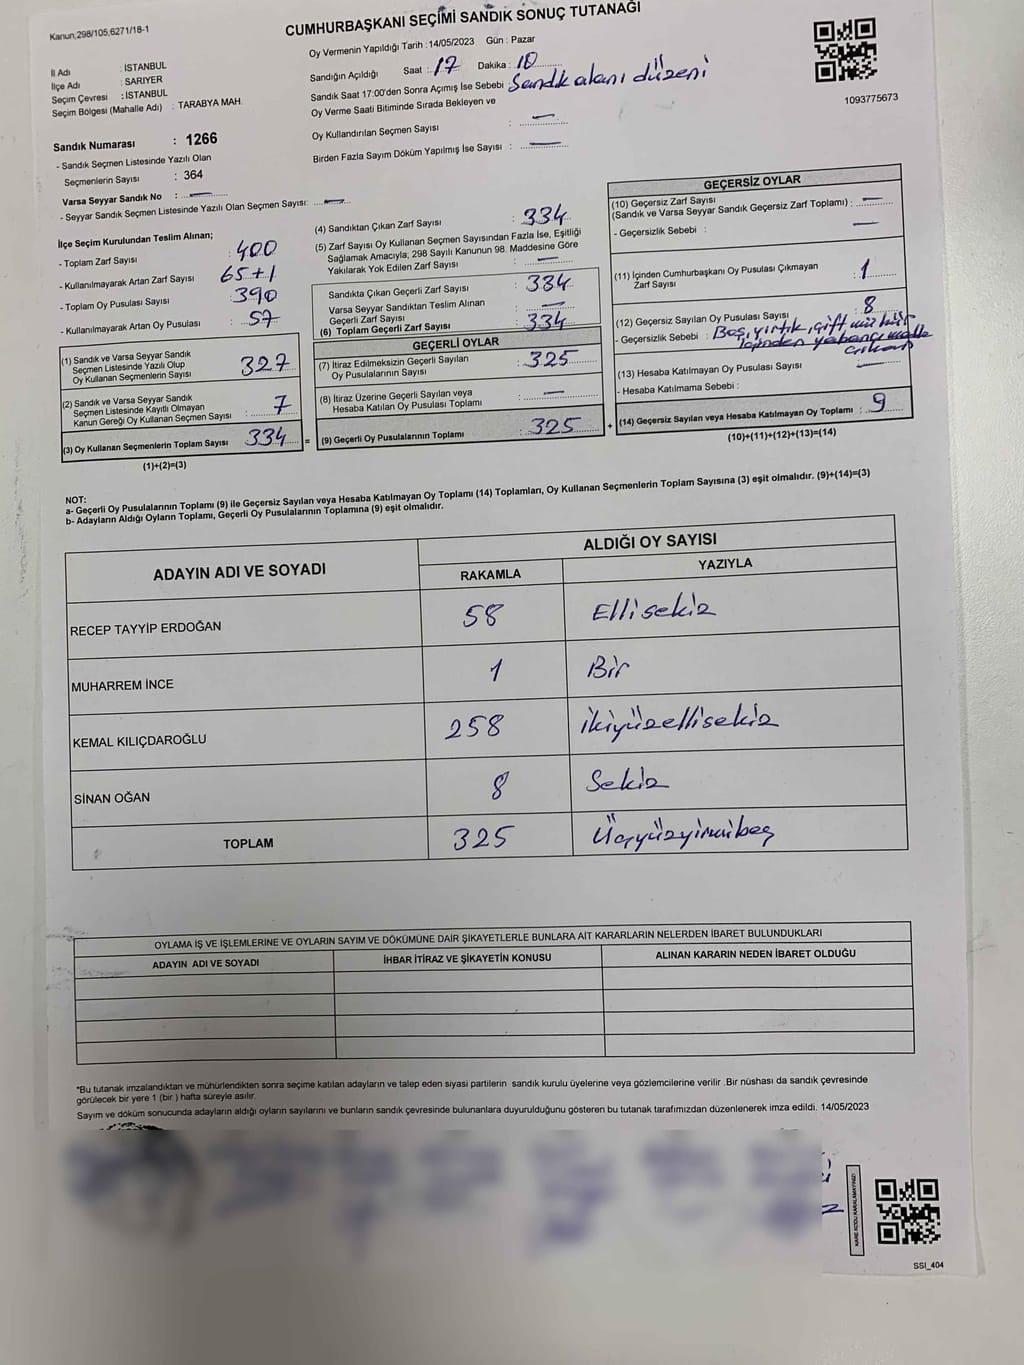 Kanun,298/105,6271/18-1
CUMHURBAŞKANI SEÇİMİ SANDIK SONUÇ TUTANAĞI
Oy Vermenin Yapıldığı Tarih :14/05/2023 Gün : Pazar
İl Adı : İSTANBUL
İlçe Adı : SARIYER
Seçim Çevresi : İSTANBUL
Seçim Bölgesi (Mahalle Adı) : TARABYA MAH.
Sandığın Açıldığı Saat : 17 Dakika : 10
Sandık Saat 17:00'den Sonra Açımış İse Sebebi : Sandık alanı düzeni
Oy Verme Saati Bitiminde Sırada Bekleyen ve
Oy Kullandırılan Seçmen Sayısı : —
Birden Fazla Sayım Döküm Yapılmış İse Sayısı : —
1093775673
Sandık Numarası : 1266
- Sandık Seçmen Listesinde Yazılı Olan
Seçmenlerin Sayısı : 364
Varsa Seyyar Sandık No : —
- Seyyar Sandık Seçmen Listesinde Yazılı Olan Seçmen Sayısı: —
İlçe Seçim Kurulundan Teslim Alınan;
- Toplam Zarf Sayısı : 400
- Kullanılmayarak Artan Zarf Sayısı 65+1
- Toplam Oy Pusulası Sayısı : 390
- Kullanılmayarak Artan Oy Pusulası : 57
(1) Sandık ve Varsa Seyyar Sandık
Seçmen Listesinde Yazılı Olup
Oy Kullanan Seçmenlerin Sayısı 327
(2) Sandık ve Varsa Seyyar Sandık
Seçmen Listesinde Kayıtlı Olmayan
Kanun Gereği Oy Kullanan Seçmen Sayısı : 7
(3) Oy Kullanan Seçmenlerin Toplam Sayısı 334 =
(1)+(2)=(3)
(4) Sandıktan Çıkan Zarf Sayısı : 334
(5) Zarf Sayısı Oy Kullanan Seçmen Sayısından Fazla İse, Eşitliği
Sağlamak Amacıyla; 298 Sayılı Kanunun 98. Maddesine Göre
Yakılarak Yok Edilen Zarf Sayısı : —
Sandıkta Çıkan Geçerli Zarf Sayısı : 334
Varsa Seyyar Sandıktan Teslim Alınan
Geçerli Zarf Sayısı : —
(6) Toplam Geçerli Zarf Sayısı : 334
GEÇERLİ OYLAR
(7) İtiraz Edilmeksizin Geçerli Sayılan
Oy Pusulalarının Sayısı : 325
(8) İtiraz Üzerine Geçerli Sayılan veya
Hesaba Katılan Oy Pusulası Toplamı : —
(9) Geçerli Oy Pusulalarının Toplamı : 325 +
GEÇERSİZ OYLAR
(10) Geçersiz Zarf Sayısı
(Sandık ve Varsa Seyyar Sandık Geçersiz Zarf Toplamı) : —
- Geçersizlik Sebebi : —
(11) İçinden Cumhurbaşkanı Oy Pusulası Çıkmayan
Zarf Sayısı : 1
(12) Geçersiz Sayılan Oy Pusulası Sayısı : 8
- Geçersizlik Sebebi : Boş, yırtık, çift mühür
içinden yabancı madde
çıkan
(13) Hesaba Katılmayan Oy Pusulası Sayısı : —
- Hesaba Katılmama Sebebi :
(14) Geçersiz Sayılan veya Hesaba Katılmayan Oy Toplamı : 9
(10)+(11)+(12)+(13)=(14)
NOT:
a- Geçerli Oy Pusulalarının Toplamı (9) ile Geçersiz Sayılan veya Hesaba Katılmayan Oy Toplamı (14) Toplamları, Oy Kullanan Seçmenlerin Toplam Sayısına (3) eşit olmalıdır. (9)+(14)=(3)
b- Adayların Aldığı Oyların Toplamı, Geçerli Oy Pusulalarının Toplamına (9) eşit olmalıdır.
ADAYIN ADI VE SOYADI ALDIĞI OY SAYISI
RAKAMLA YAZIYLA
RECEP TAYYİP ERDOĞAN 58 Ellisekiz
MUHARREM İNCE 1 Bir
KEMAL KILIÇDAROĞLU 258 ikiyüzellisekiz
SİNAN OĞAN 8 Sekiz
TOPLAM 325 Üçyüzyirmibeş
OYLAMA İŞ VE İŞLEMLERİNE VE OYLARIN SAYIM VE DÖKÜMÜNE DAİR ŞİKAYETLERLE BUNLARA AİT KARARLARIN NELERDEN İBARET BULUNDUKLARI
ADAYIN ADI VE SOYADI İHBAR İTİRAZ VE ŞİKAYETİN KONUSU ALINAN KARARIN NEDEN İBARET OLDUĞU
*Bu tutanak imzalandıktan ve mühürlendikten sonra seçime katılan adayların ve talep eden siyasi partilerin sandık kurulu üyelerine veya gözlemcilerine verilir .Bir nüshası da sandık çevresinde
görülecek bir yere 1 (bir ) hafta süreyle asılır.
Sayım ve döküm sonucunda adayların aldığı oyların sayılarını ve bunların sandık çevresinde bulunanlara duyurulduğunu gösteren bu tutanak tarafımızdan düzenlenerek imza edildi. 14/05/2023
KARE KODU KARALAMAYINIZ!
SSI_404